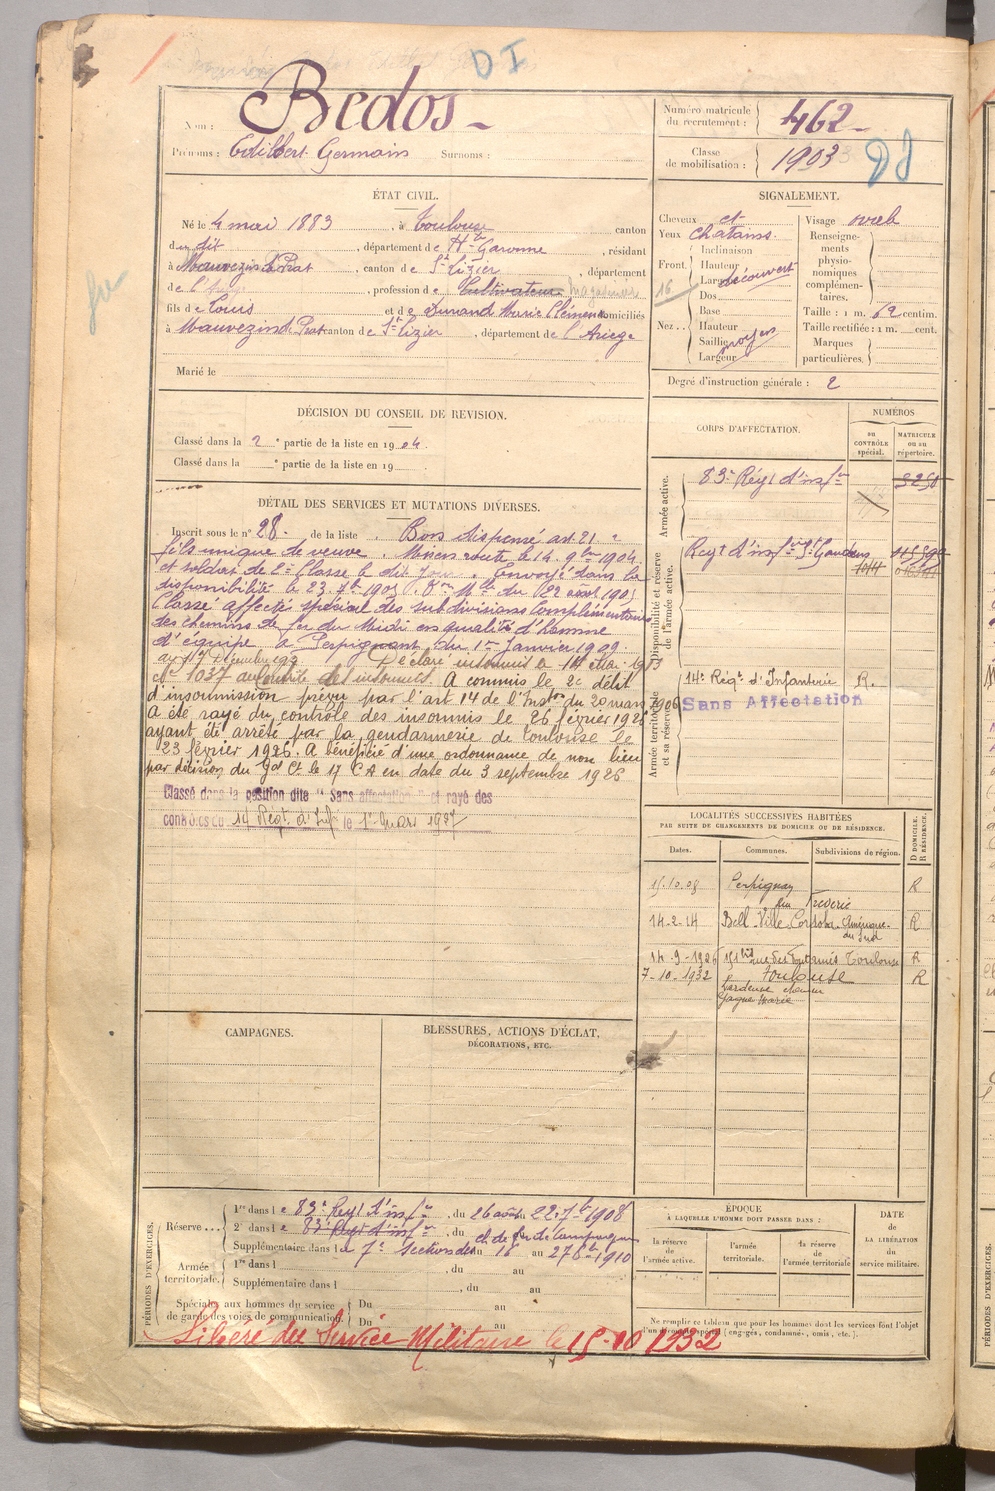 DI
Nom : Bedos
Prénoms : Edilbert Germain Surnoms :
Numéro matricule du recrutement : 462
Classe de mobilisation : 1903
ÉTAT CIVIL.
Né le 4 mai 1883, à Toulouse canton
du dit, département de Hte Garonne, résidant
à Mauvezin de Prat, canton de St Lizier, département
de l'Ariège, profession de Cultivateur
fils de Louis et de Durand Marie Clémence domiciliés
à Mauvezin de Prat canton de St Lizier, département de l'Ariege
Marié le
SIGNALEMENT.
Cheveux et
Yeux chatains.
Front. Inclinaison
Hauteur
Largeur découvert
16
Nez. Dos
Base
Hauteur
Saillie moyen
Largeur
Visage ovale
Renseignements physionomiques complémentaires.
Taille : 1 m. 62 centim.
Taille rectifiée : 1 m. cent.
Marques particulières.
Degré d'instruction générale : 2
DÉCISION DU CONSEIL DE REVISION.
Classé dans la 2e partie de la liste en 1904.
Classé dans la e partie de la liste en 19
DÉTAIL DES SERVICES ET MUTATIONS DIVERSES.
Inscrit sous le n° 28. de la liste. Bon dispensé art. 21
fils unique de veuve. Mis en route le 14. 9bre 1904
et soldat de 2e Classe le dit jour. Envoyé dans la
disponibilité le 23. 7bre 1905
Classé affecté spécial des subdivisions complémentaires
des chemins de fer du Midi en qualité d'homme
d'équipe à Perpignan du 1er Janvier 1909.
Déclaré insoumis le 14 Mai 1913
n° 1037 au contrôle des insoumis. A commis le 2e délit
d'insoumission prévu par l'art 14 de l'Instion du 20 mars 1906
A été rayé du contrôle des insoumis le 26 février 1926
ayant été arrêté par la gendarmerie de Toulouse le
23 février 1926. A bénéficié d'une ordonnance de non lieu
par décision du Gal Ct le 17 CA en date du 3 septembre 1926
Classé dans la position dite "Sans affectation" et rayé des
contrôles du 14 Régt d'Infie le 1er Mars 1927
CORPS D'AFFECTATION.
NUMÉROS
au CONTRÔLE spécial.
MATRICULE ou au répertoire.
Armée active.
83e Régt d'inf 3250
Disponibilité et réserve de l'armée active.
Regt d'inf St Gaudens
1014
Armée territoriale et sa réserve
14e Régt d'Infanterie R.
Sans Affectation
LOCALITÉS SUCCESSIVES HABITÉES
PAR SUITE DE CHANGEMENTS DE DOMICILE OU DE RÉSIDENCE.
Dates. Communes. Subdivisions de région. D DOMICILE. R RÉSIDENCE.
15.10.08 Perpignan R
14-2-14 Bell-Ville Cordoba Amérique du Sud R
14-9-1926 Toulouse R
7-10-1932 Toulouse R
CAMPAGNES.
BLESSURES, ACTIONS D'ÉCLAT, DÉCORATIONS, ETC.
PÉRIODES D'EXERCICES.
Réserve... 1re dans le 83e Regt d'inf, du 26 août au 22.7bre 1908
2e dans le 83e Regt d'inf, du
ch de fer de campagne
Supplémentaire dans le 7e Section du 18 au 27 1910
Armée territoriale. 1re dans l , du au
Supplémentaire dans l , du au
Spéciales aux hommes du service de garde des voies de communication. Du au
Du au
ÉPOQUE
À LAQUELLE L'HOMME DOIT PASSER DANS :
la réserve de l'armée active.
l'armée territoriale.
la réserve de l'armée territoriale
DATE de LA LIBÉRATION du service militaire.
Ne remplir ce tableau que pour les hommes dont les services font l'objet
d'un décompte spécial (engagés, condamnés, omis, etc.).
Libéré du Service Militaire le 15-10 1932
PÉRIODES D'EXERCICES.